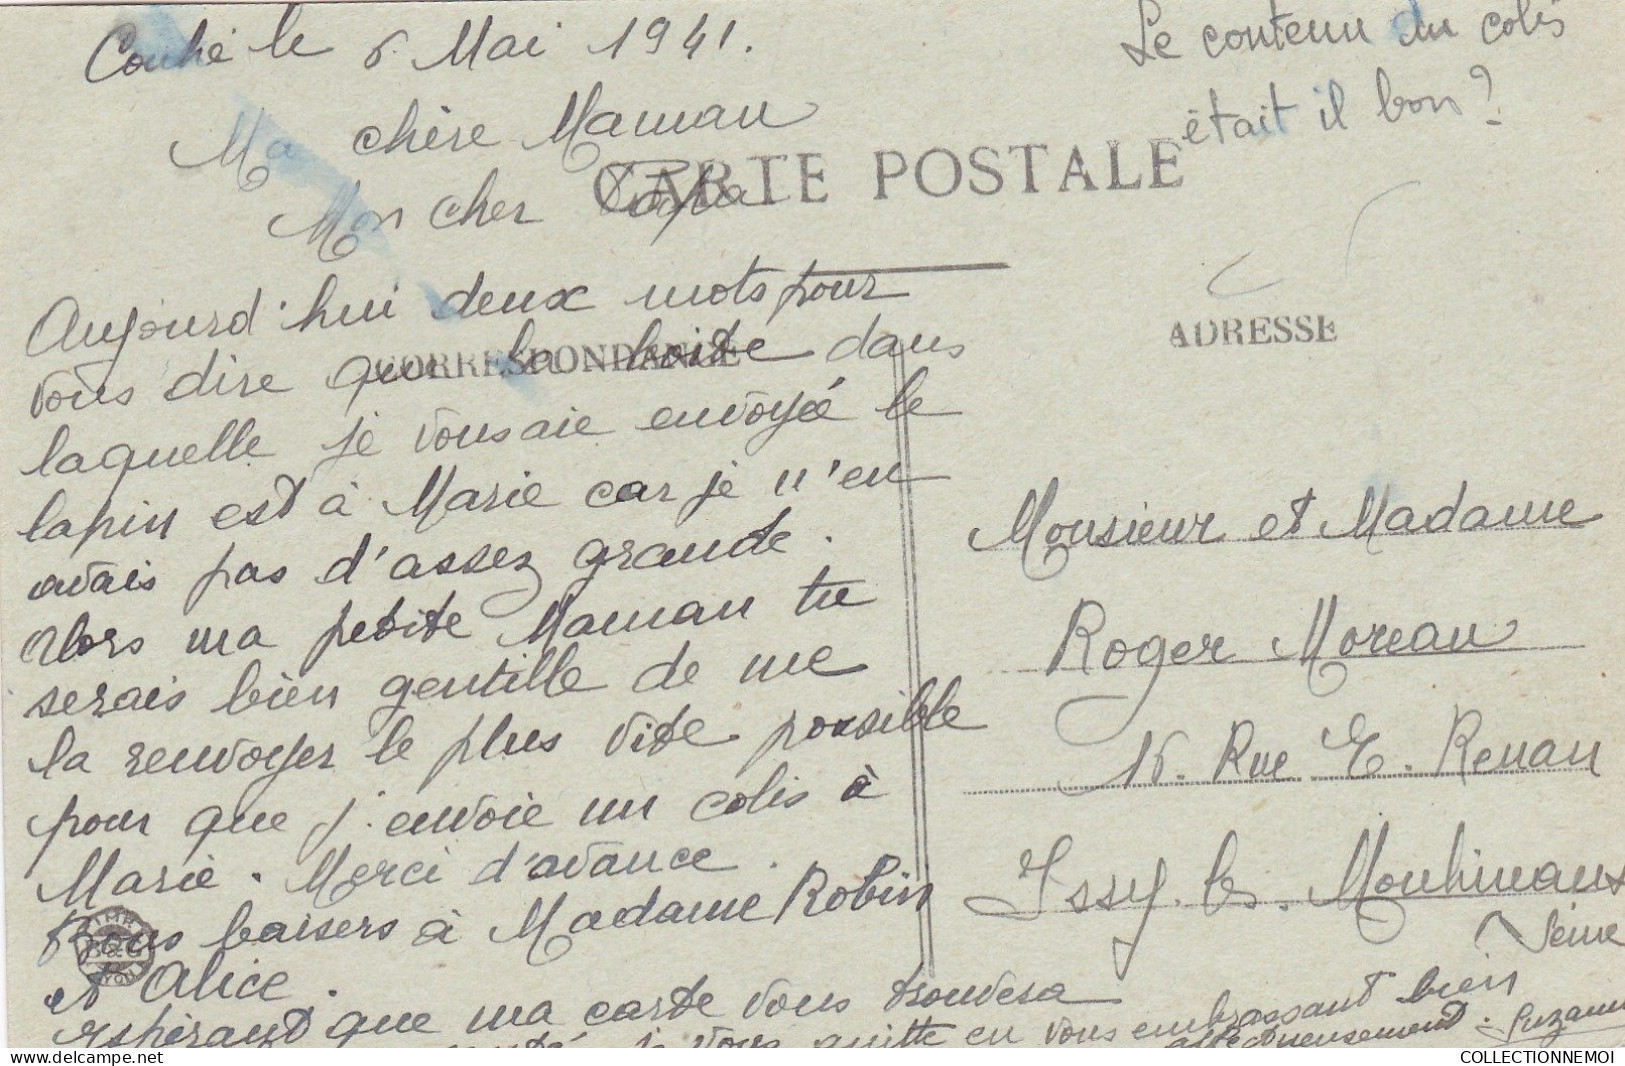 Couhé le 6 Mai 1941.
Le contenu du colis
était il bon?
Ma chère Maman
Mon cher Papa
CARTE POSTALE
Aujourd'hui deux mots pour
vous dire que la boite dans
CORRESPONDANCE
ADRESSE
laquelle je vous aie envoyé le
lapin est à Marie car je n'en
avais pas d'assez grande.
Alors ma petite Maman tu
serais bien gentille de me
la renvoyer le plus vite possible
pour que j'envoie un colis à
Marie. Merci d'avance.
Bons baisers à Madame Robin
et Alice.
espérant que ma carte vous trouvera
je vous quitte en vous embrassant bien
affectueusement. Suzanne
Monsieur et Madame
Roger Moreau
15. Rue E. Renan
Issy. les. Moulineaux
Seine
COLLECTIONNEMOI